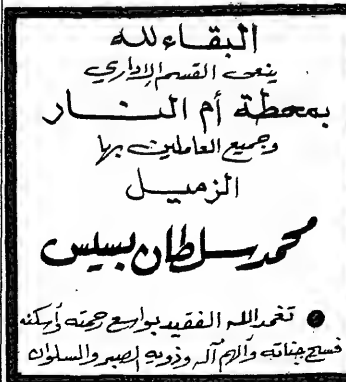 البقاء لله
ينعى القسم الإداري
بمحطة أم النار
وجميع العاملين بها
الزميل
محمد سلطان بسيس
● تغمد الله الفقيد بواسع رحمته وأسكنه
فسيح جناته وألهم آله وذويه الصبر والسلوان